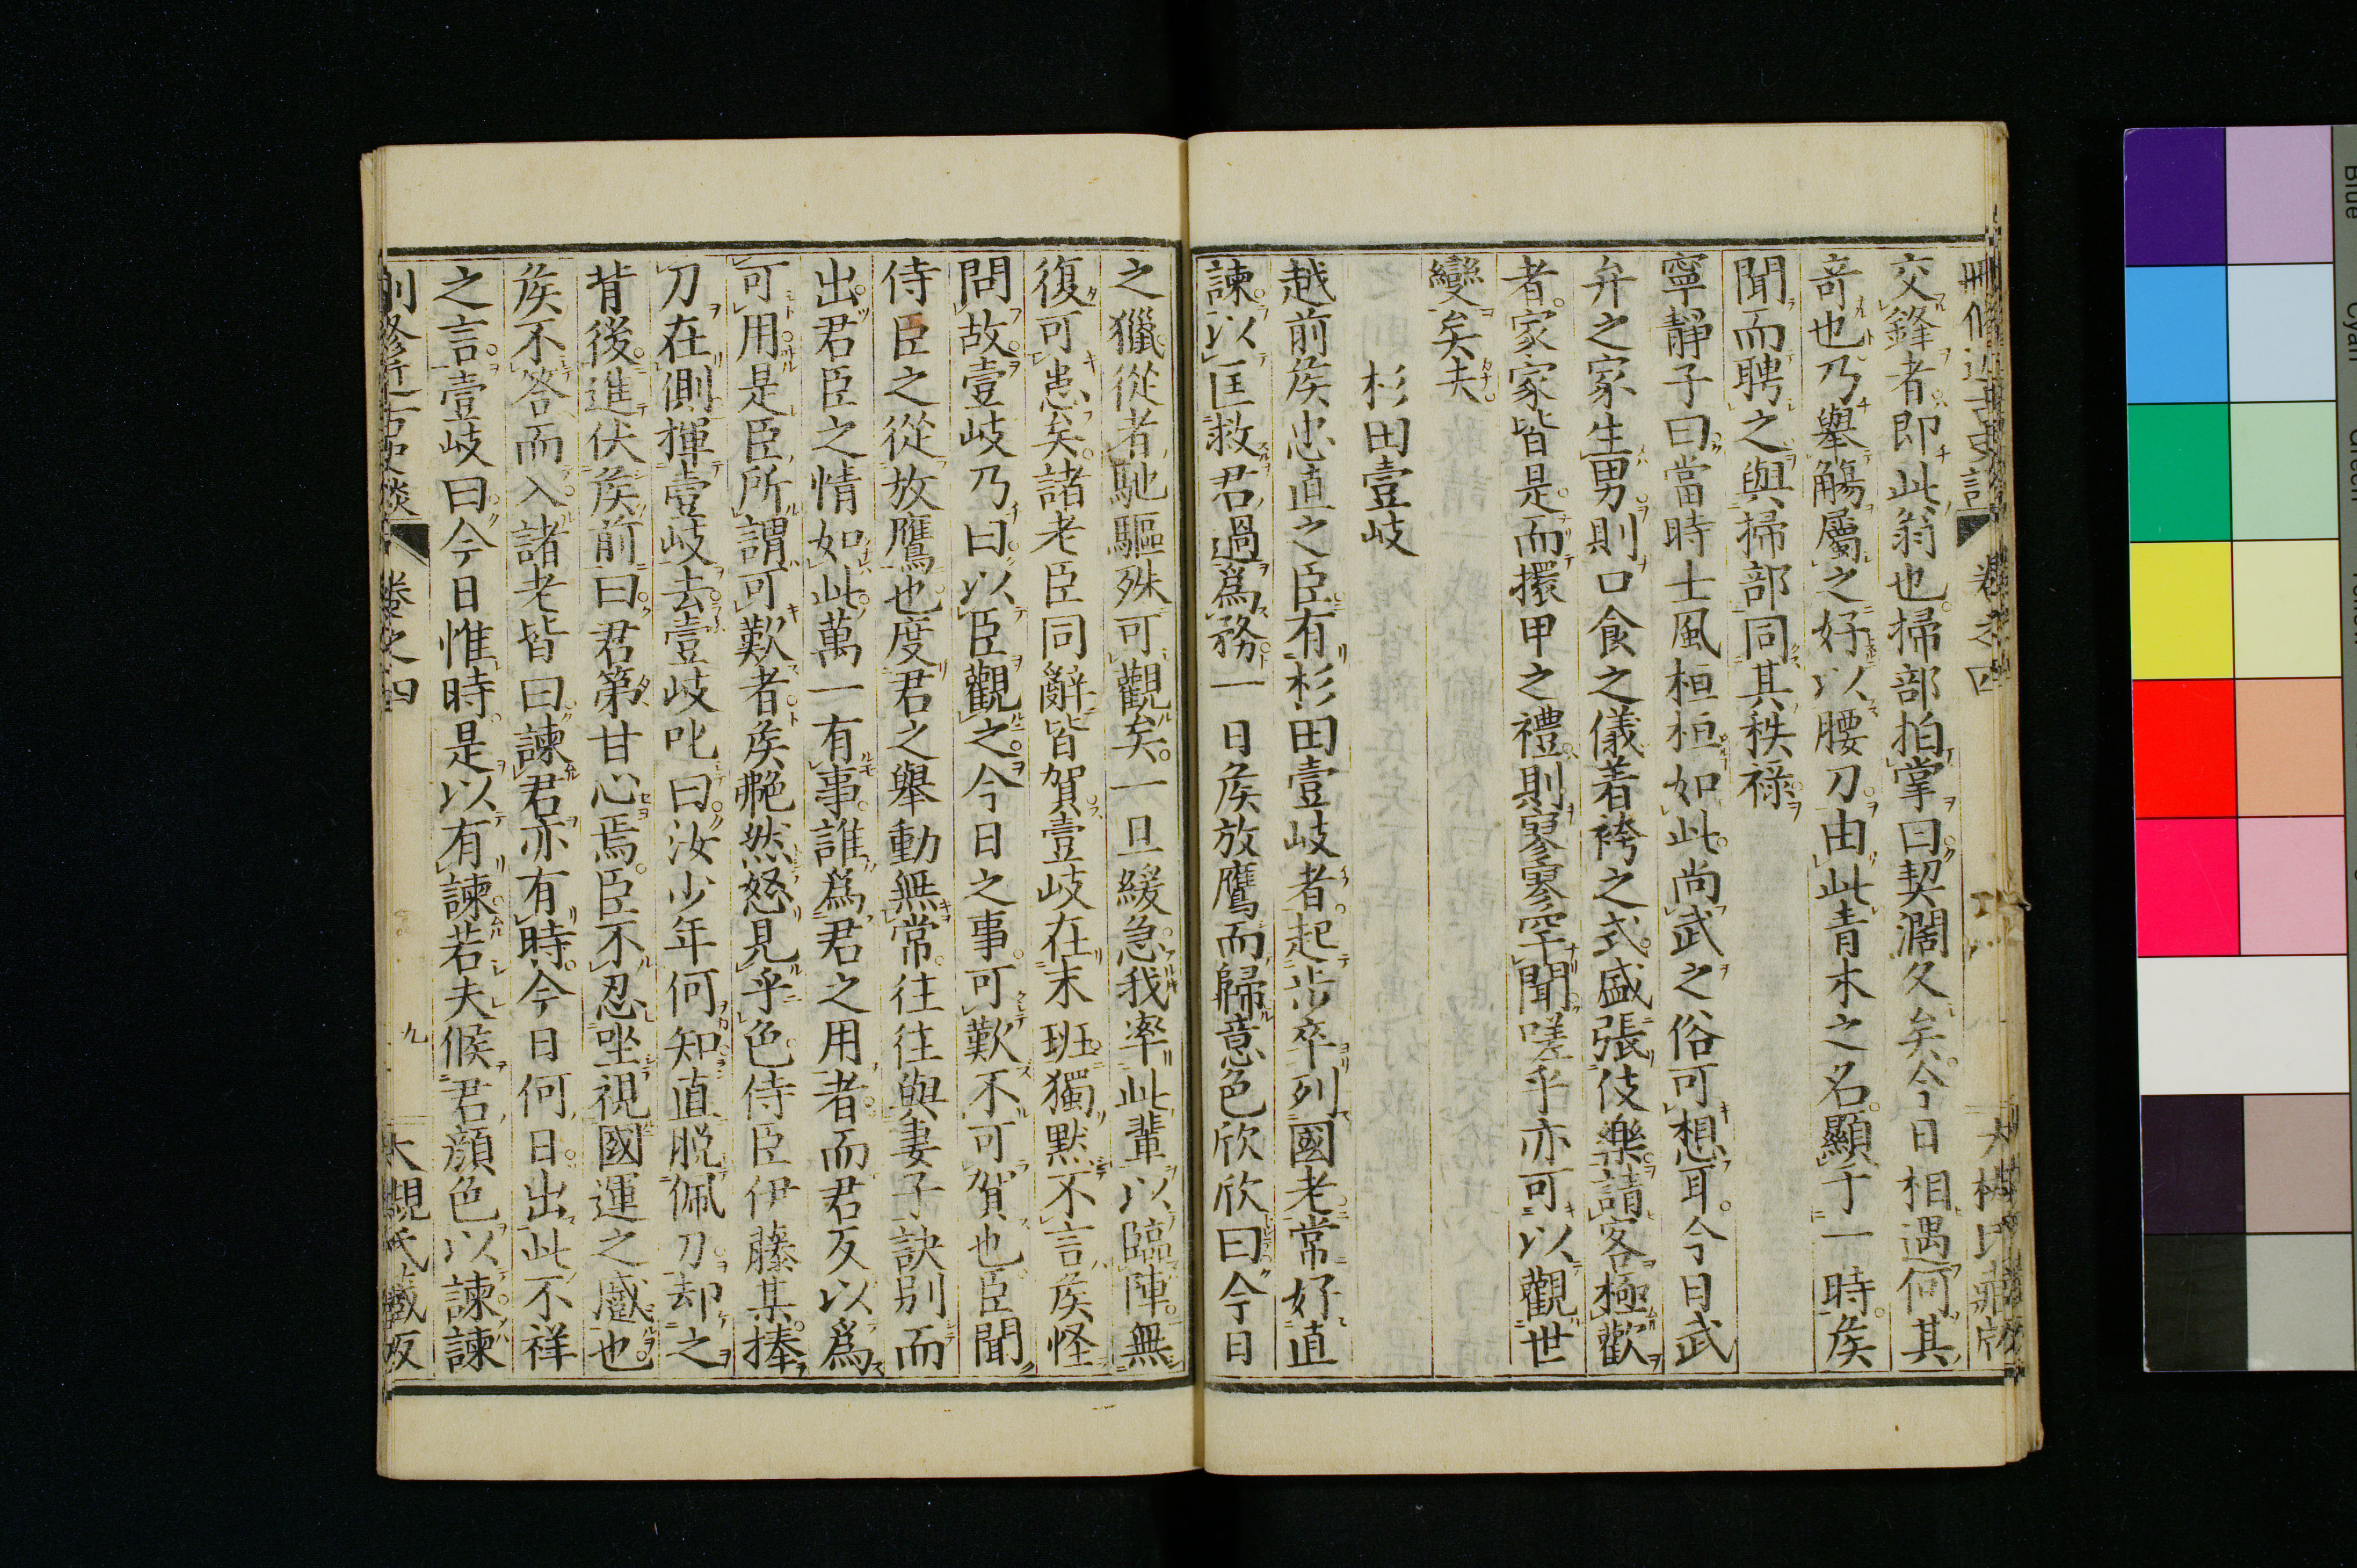 交鋒者即此翁也掃部拍掌曰契濶久矣今日相遇何其
竒也乃舉觴屬之好以腰刀由此青木之名顯于一時矦
聞而聘之與掃部同其秩祿
寧靜子曰當時士風桓桓如此尚武之俗可想耳今日武
弁之家生男則口食之儀着袴之式盛張伎樂請客極歡
者家家皆是而擐甲之禮則寥寥罕聞嗟乎亦可以觀世
變矣夫
杉田壹岐
越前矦忠直之臣有杉田壹岐者起步卒列國老常好直
諫以匡救君過爲務一日矦放鷹而歸意色欣欣曰今日
之獵從者馳驅殊可觀矣一旦緩急我率此輩以臨陣無
復可恚矣諸老臣同辭皆賀壹岐在末班獨默不言矦怪
問故壹岐乃曰以臣觀之今日之事可歎不可賀也臣聞
侍臣之從放鷹也度君之舉動無常往往與妻子訣别而
出君臣之情如此萬一有事誰爲君之用者而君反以爲
可用是臣所謂可歎者矦艴然怒見乎色侍臣伊藤某捧
刀在側揮壹岐去壹岐叱曰汝少年何知直脱佩刀却之
背後進伏矦前曰君第甘心焉臣不忍坐視國運之蹙也
矦不答而入諸老皆曰諫君亦有時今日何日出此不祥
之言壹岐曰今日惟時是以有諫若夫候君顔色以諫諫
卷之四
九